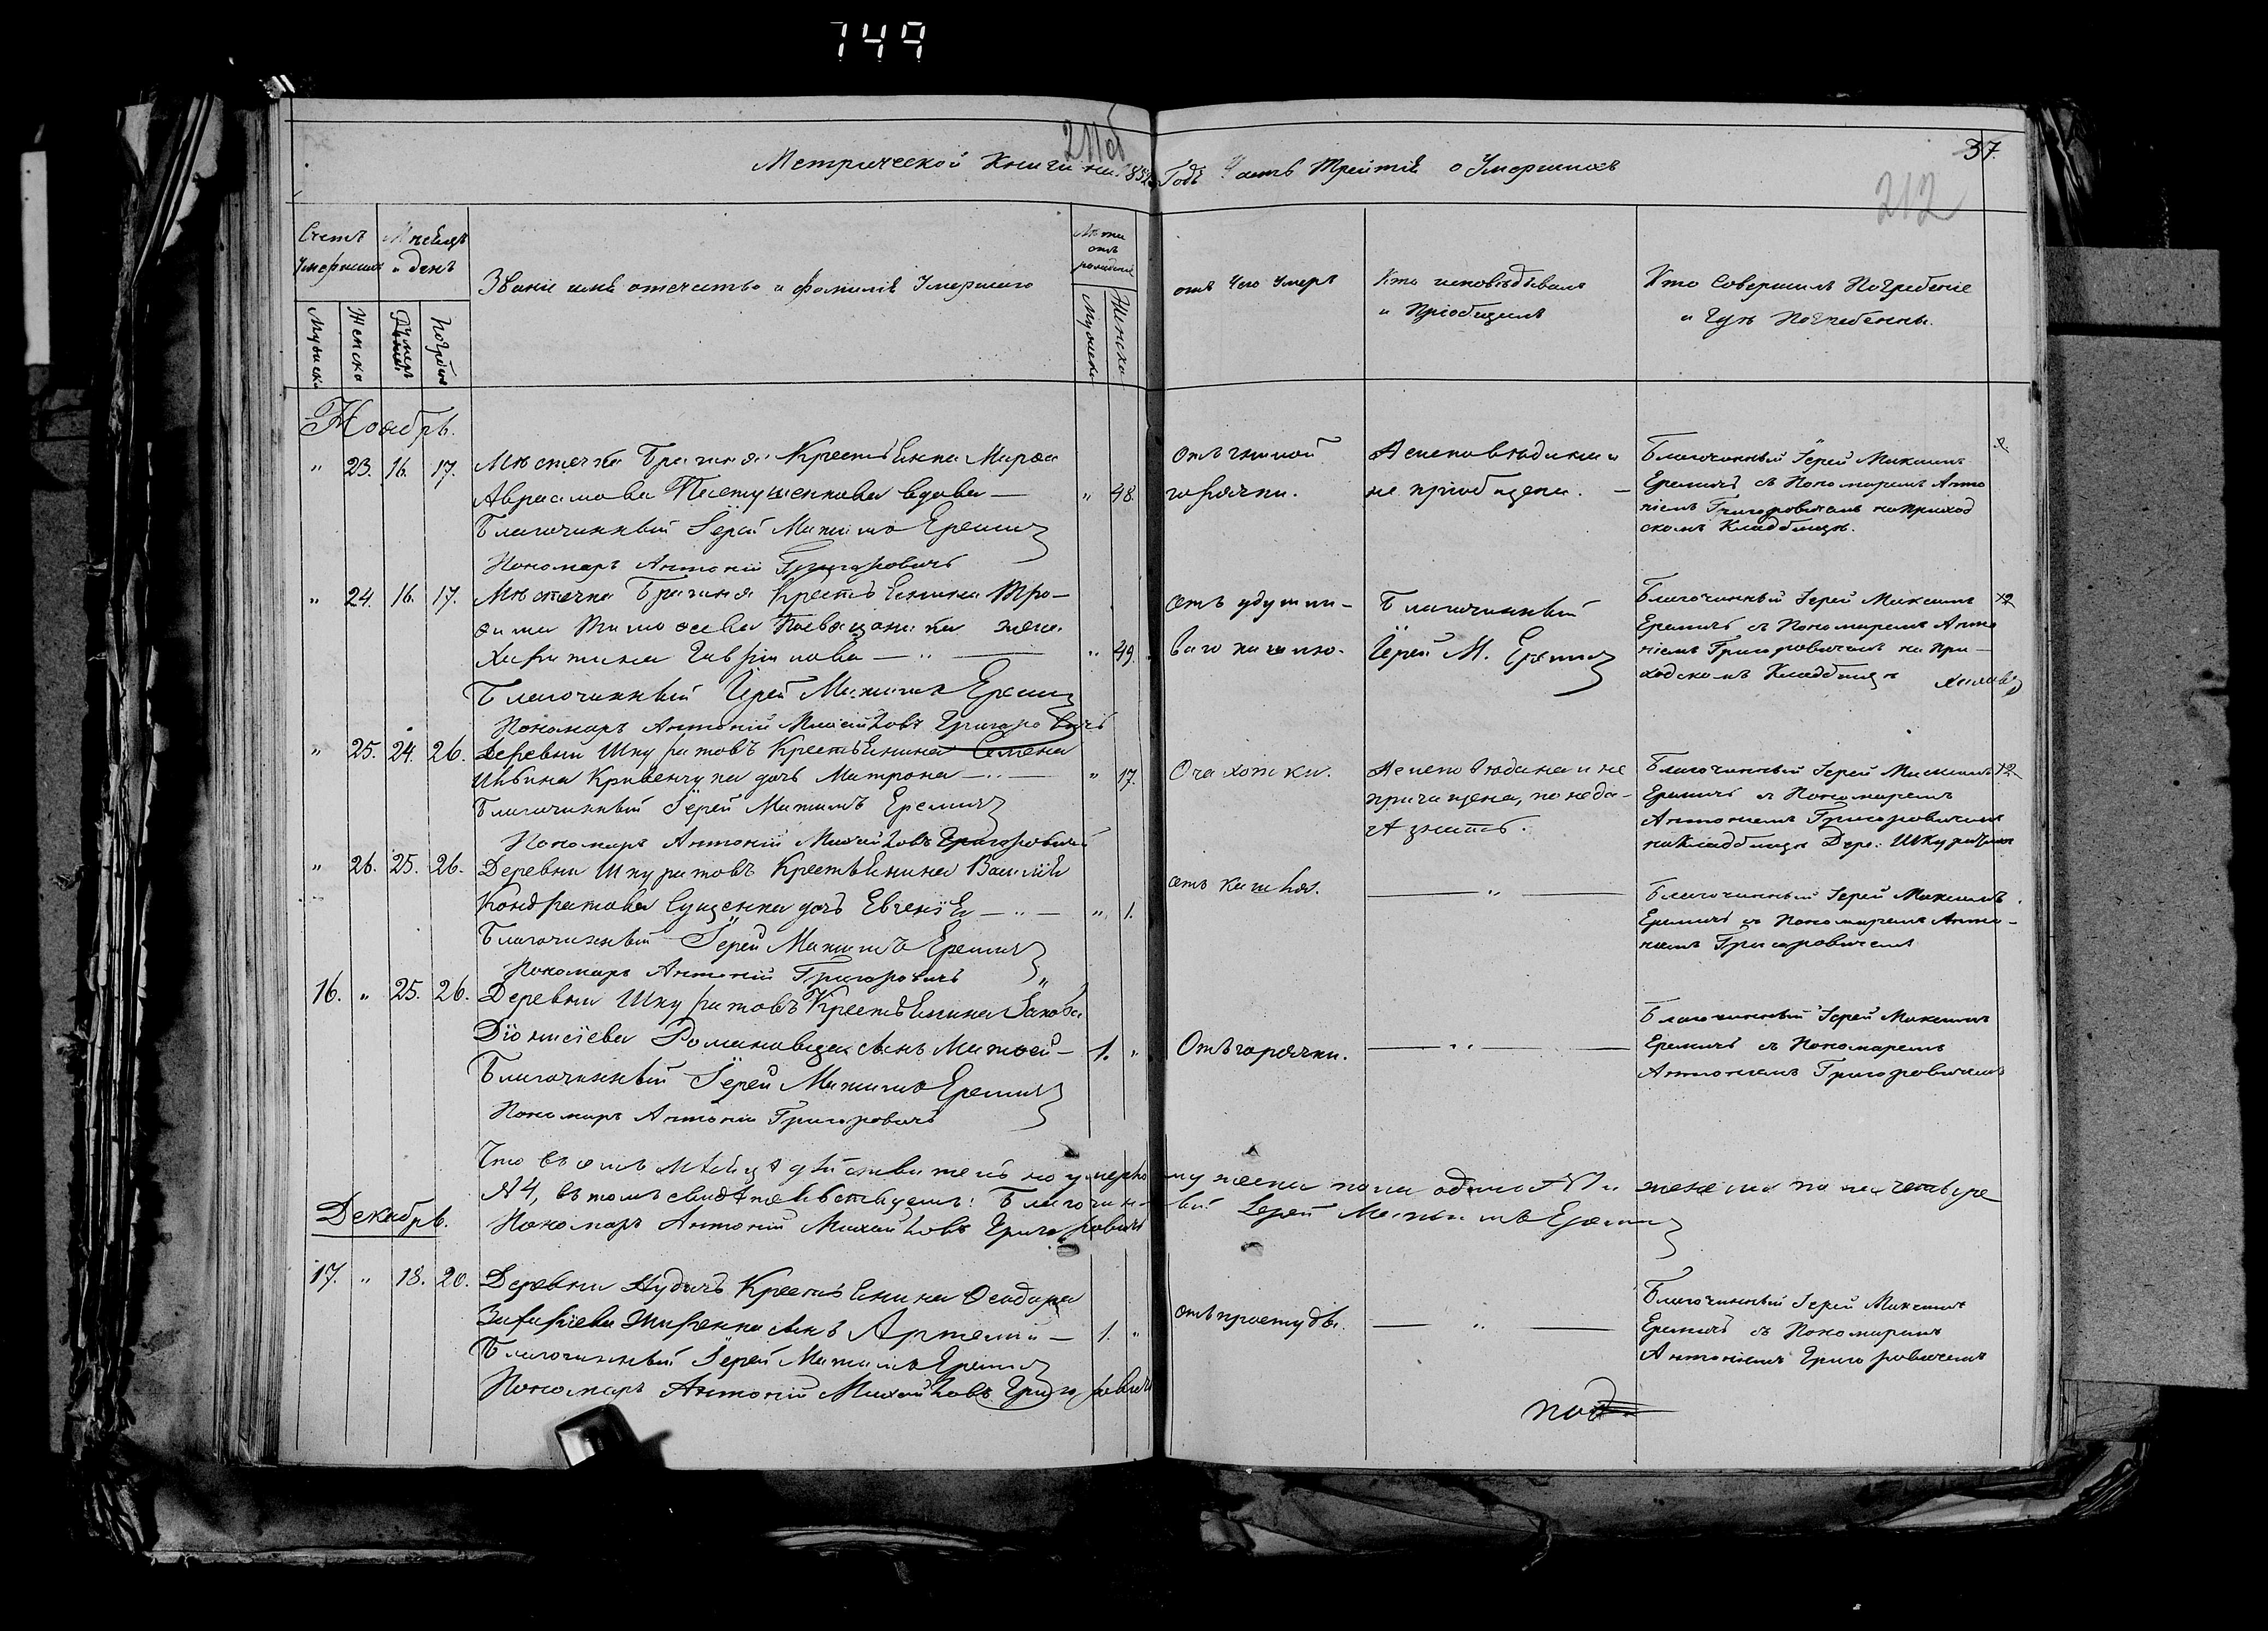 749
211об
37.
212
Метрической Книги на 1852 Годъ Часть Третія о Умершихъ
Счетъ Умершихъ
Мѣсяцъ и день
Званіе имя отечество и фамилія Умершаго
Лѣта отъ рожденія
отъ Чего Умеръ
Кто исповѣдывалъ
и Пріобщилъ
Кто Совершилъ Погребеніе
и Гдѣ Погребенны.
Мужеска
Женска
Умеръ
Погребенъ
Мужеска
Женска
Ноябрь.
" 23. 16. 17. Мѣстечка Брагиня Крестьянка Марѳа
Авраамова вдова — " 48.
Благочинный Іерей Максимъ Еремичъ
Пономарь Антоній Григоровичъ
отъ гнилой
горячки.
Неисповѣдина и
не пріобщена. —
Благочинный Іерей Максимъ
Еремичъ съ Пономаремъ Анто
ніемъ Григоровичемъ на приход
скомъ Кладбищѣ.
" 24. 16. 17. Мѣстечка Брагиня Крестьянина Тро-
фима Тимоѳеева жена
Харитина Гаврилова — " — " 49.
Благочинный Іерей Максимъ Еремичъ
Пономарь Антоній Михайловъ Григоровичъ
отъ удушли-
ваго кашлю.
Благочинный
Іерей М. Еремичъ
Благочинный Іерей Максимъ
Еремичъ съ Пономаремъ Анто
ніемъ Григоровичемъ на при-
ходскомъ Кладбищѣ
" 25. 24. 26. Деревни Шкуратовъ Крестьянина Семена
Ильина Кривенчука дочь Матрона — " — " 17.
Благочинный Іерей Максимъ Еремичъ
Пономарь Антоній Михайловъ Григоровичъ
Очахотки.
Неисповѣдана и не
причащена, по неда-
Благочинный Іерей Максимъ
Еремичъ съ Пономаремъ
Антоніемъ Григоровичемъ
на Кладбищѣ Дере: Шкуратовъ
" 26. 25. 26. Деревни Шкуратовъ Крестьянина Василія
Кондратова Сущенка дочь Евгенія — " — " 1.
Благочинный Іерей Максимъ Еремичъ
Пономарь Антоній Григоровичъ
отъ кашля.
— " —
Благочинный Іерей Максимъ
Еремичъ съ Пономаремъ Анто-
ніемъ Григоровичемъ
16. " 25. 26. Деревни Шкуратовъ Крестьянина Іакова
Діонисіева Романовца сынъ Матѳей — 1. "
Благочинный Іерей Максимъ Еремичъ
Пономарь Антоній Григоровичъ
Отъ горячки.
— " —
Благочинный Іерей Максимъ
Еремичъ съ Пономаремъ
Антоніемъ Григоровичемъ
Что въ семъ мѣсяцѣ дѣйствительно умерло мужеска пола одинъ № 1 и женска пола четыре
№ 4, въ томъ свидѣтельствуемъ: Благочинный Іерей Максимъ Еремичъ
Пономарь Антоній Михайловъ Григоровичъ
Декабрь.
17. " 18. 20. Деревни Нудичъ Крестьянина Ѳеодора
Захаріева сынъ Артемій — 1. "
Благочинный Іерей Максимъ Еремичъ
Пономарь Антоній Михайловъ Григоровичъ
отъ простуды.
— " —
Благочинный Іерей Максимъ
Еремичъ съ Пономаремъ
Антоніемъ Григоровичемъ